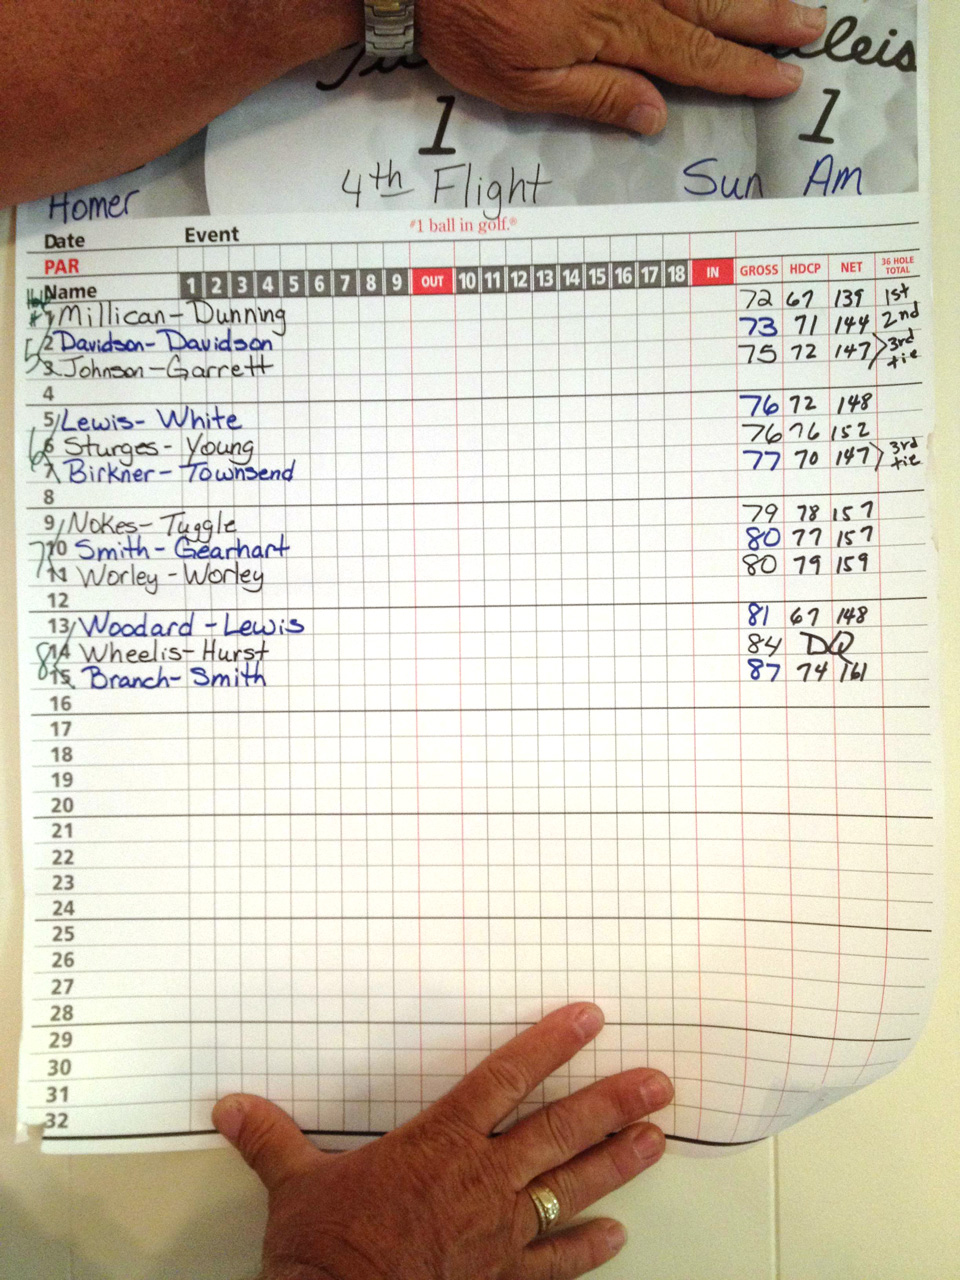 1 1
4th Flight Sun Am
Homer
#1 ball in golf.®
Date Event
PAR
Name 1 2 3 4 5 6 7 8 9 OUT 10 11 12 13 14 15 16 17 18 IN GROSS HDCP NET 36 HOLE TOTAL
1 Millican-Dunning 72 67 139 1st
2 Davidson-Davidson 73 71 144 2nd
3 Johnson-Garrett 75 72 147 3rd tie
4
5 Lewis-White 76 72 148
6 Sturges-Young 76 76 152
7 Birkner-Townsend 77 70 147 3rd tie
8
9 Nokes-Tuggle 79 78 157
10 Smith-Gearhart 80 77 157
11 Worley-Worley 80 79 159
12
13 Woodard-Lewis 81 67 148
14 Wheelis-Hurst 84 DQ
15 Branch-Smith 87 74 161
16
17
18
19
20
21
22
23
24
25
26
27
28
29
30
31
32